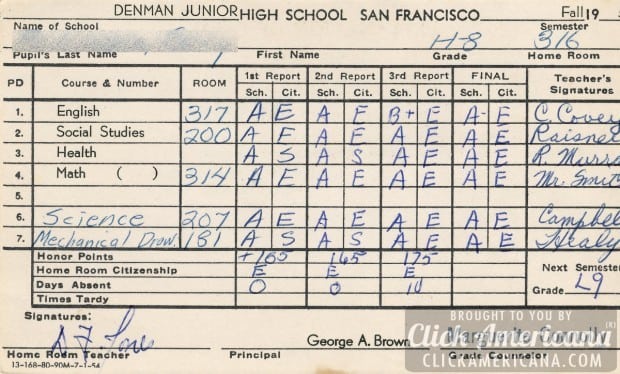 DENMAN JUNIOR HIGH SCHOOL SAN FRANCISCO Fall 19
Name of School Semester
H-8 316
Pupil's Last Name First Name Grade Home Room
PD Course & Number ROOM 1st Report 2nd Report 3rd Report FINAL Teacher's Signatures
Sch. Cit. Sch. Cit. Sch. Cit. Sch. Cit.
1. English 317 A E A E B+ E A- E C. Covey
2. Social Studies 200 A E A E A E A E
3. Health A S A S A E A E R. Murra
4. Math ( ) 314 A E A E A E A E Mr. Smith
5.
6. Science 207 A E A E A E A E Campbel
7. Mechanical Draw. 181 A S A S A E A E Healy
Honor Points +165 165 175
Home Room Citizenship E E E
Days Absent 0 0 10
Times Tardy
Next Semester
Grade L9
Signatures:
George A. Brown
Home Room Teacher Principal Grade Counselor
13-168-80-90M-7-1-54
BROUGHT TO YOU BY
Click Americana (R)
CLICKAMERICANA.COM